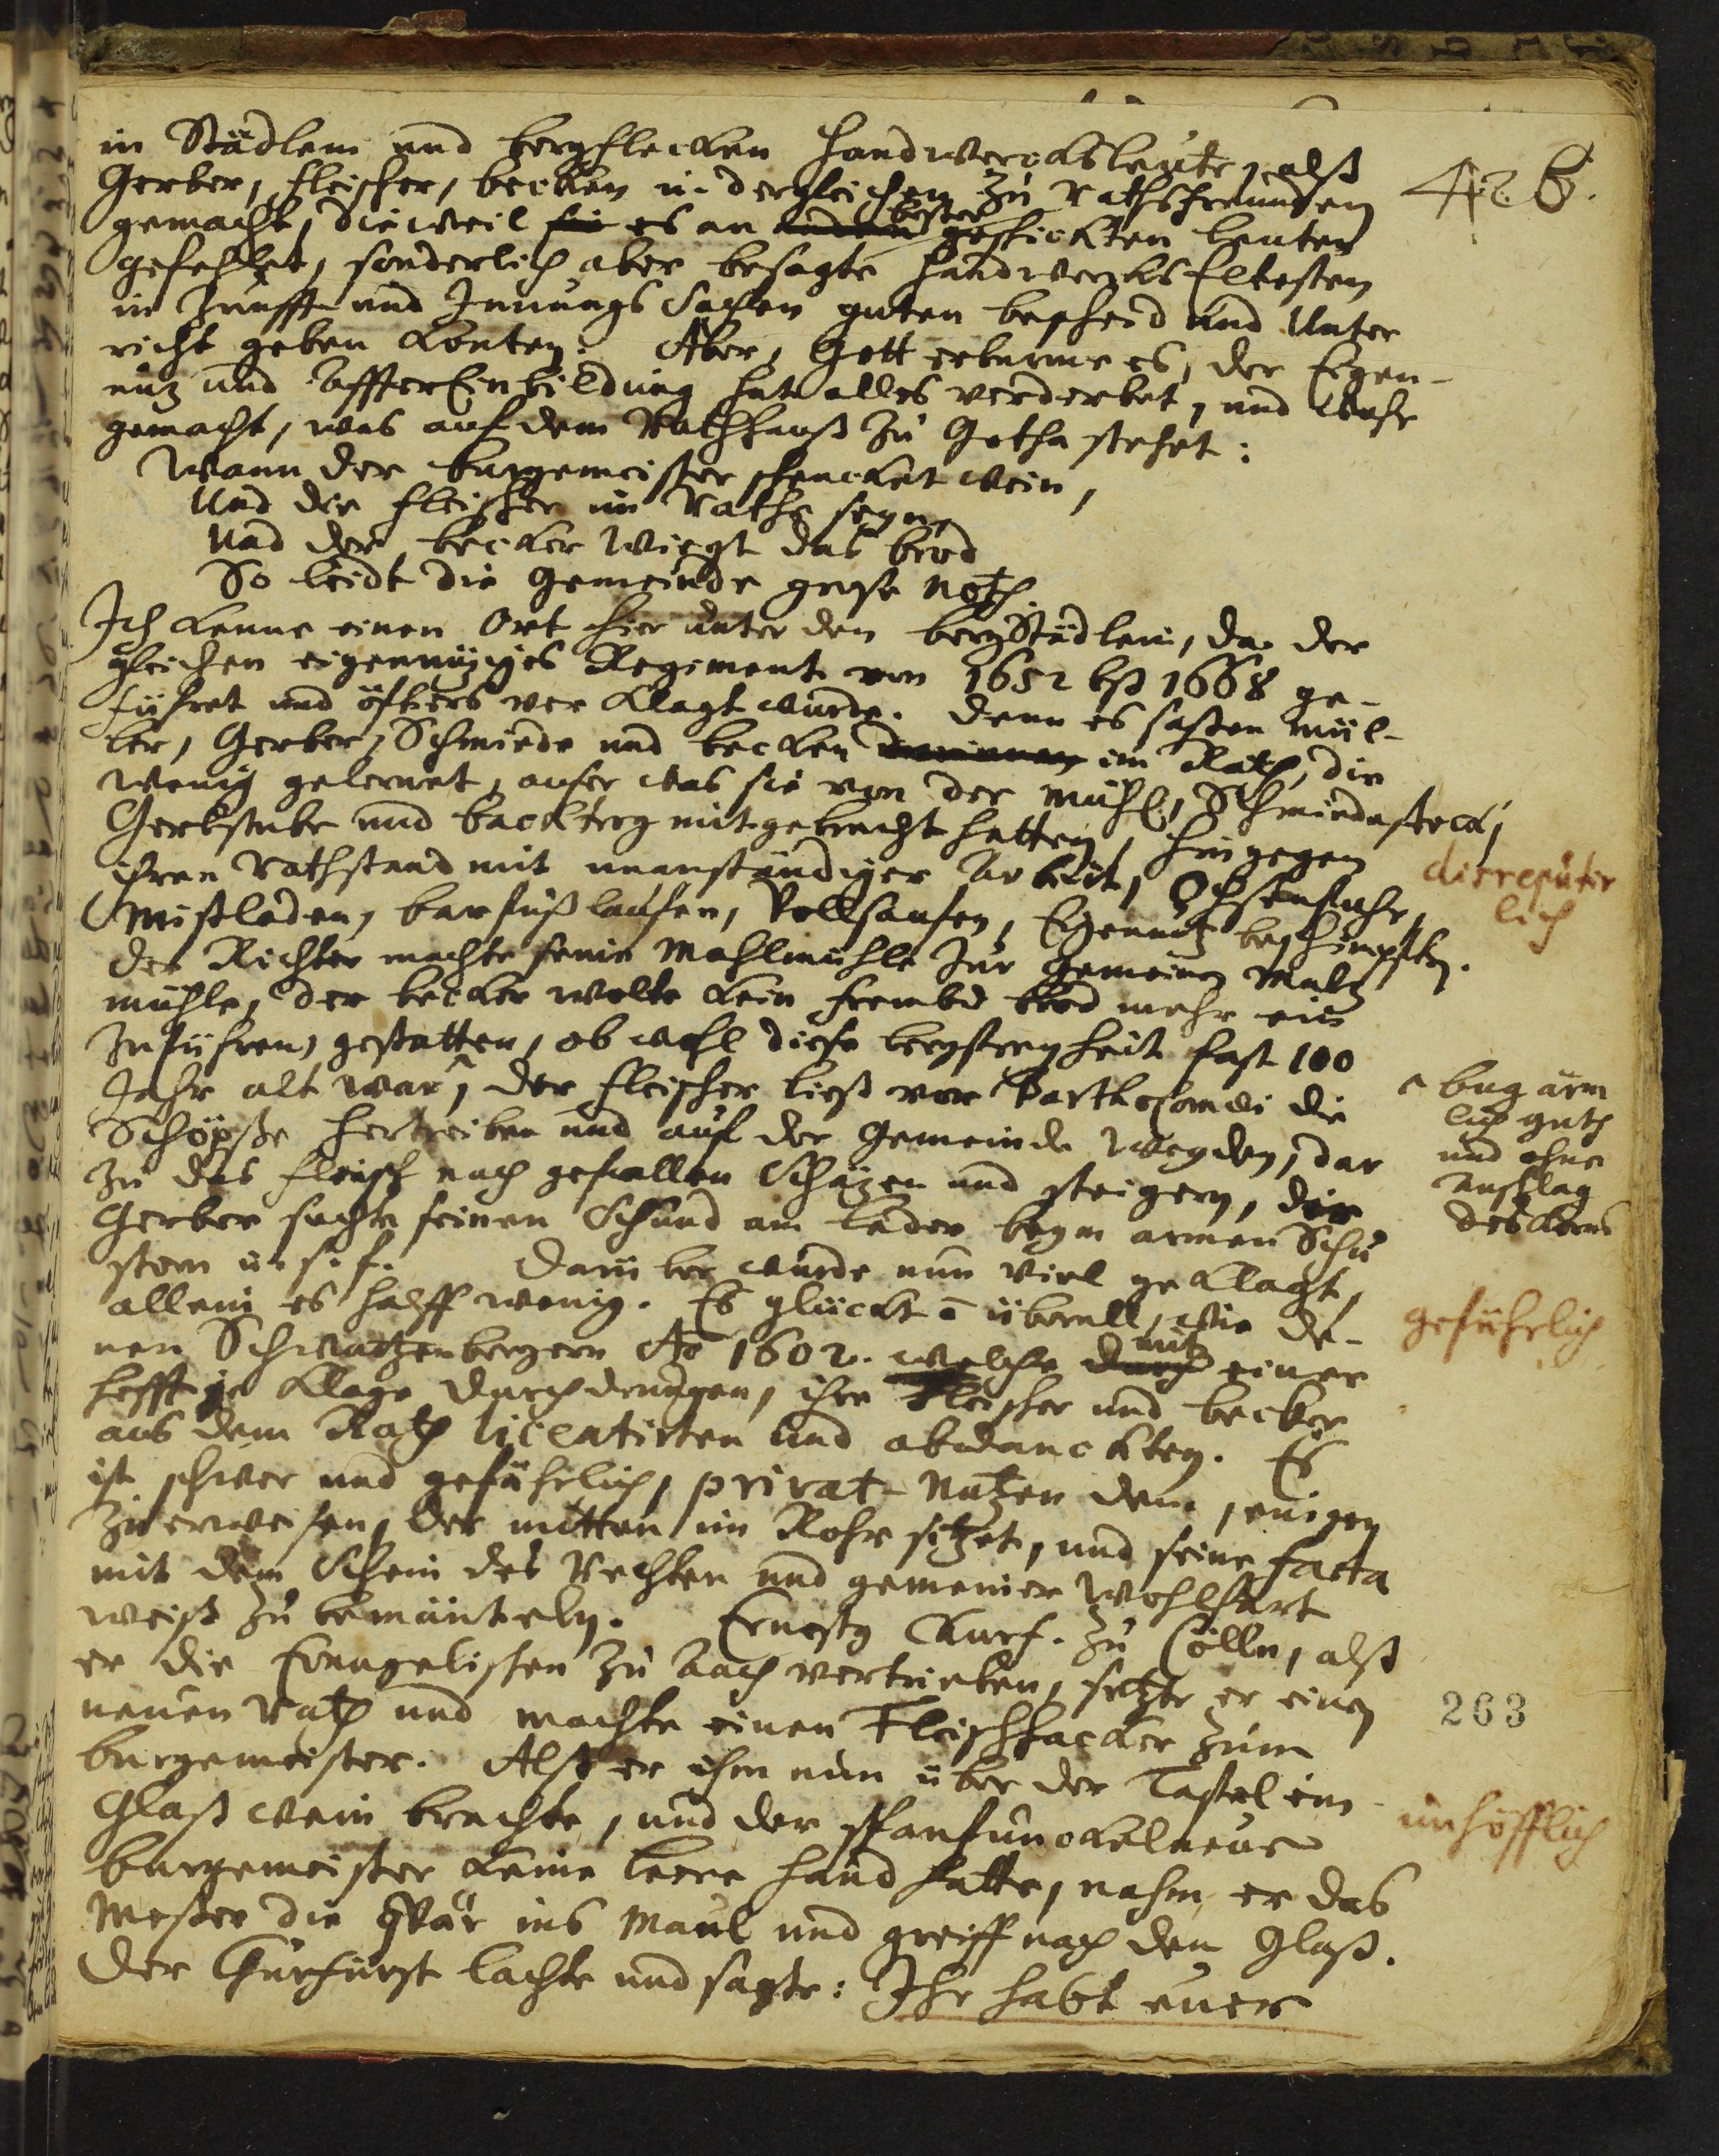 in Städlein und bergflecken Handwercksleute, alß
Gerber, Fleischer, becken u. dergleichen zu Rathsfreunden
gemacht, dieweil sie es an andern besser geschickten leuten
gefehlet, sonderlich aber besagte Handwercks Eltesten
in Zunfft und Innungs Sachen guten bescheid und Unter
richt geben konten. Aber, Gott erbarme es, der Eigen-
nuz und AffterEinbildung hat alles verderbet, und wahr
gemacht, was auf dem Rathhauß zu Gotha stehet:
Wann der burgemeister schencket wein,
Und die Fleischer im Rathe seyn,
Und der becker wiegt das brod
So leidt die Gemeinde grose Noth.
Ich kenne einen Ort hier unter den bergStädlein, da der
gleichen eigennüziges Regiment von 1652 biß 1668 ge-
führet und öffters ver klagt wurde. Denn es saßen Mül-
ler, Gerber, Schmiede und becken darinnen im Rath, die
wenig gelernet, auser was sie von der Mühl, Schmiedestock,
Gerbstube und backtrog mitgebracht hatten, hingegen
ihren Rathstand mit unanständiger Arbeit, Ochsenfuhr,
Mistladen, barfuß laufen, Vollsaufen, Eigennutz beschimpften.
Der Richter machte seine Mahlmühle zur gemeinen Malz
mühle, der becker wolte kein frembd brod mehr ein
zuführen, gestatten, ob wohl diese bergfreyheit fast 100
Jahr alt war^, der Fleischer ließ vor Bartholomäi die
Schöpße hertreiben und auf der Gemeinde weyden, dar
zu das Fleisch nach gefallen Schäzen und steigern, der
Gerber suchte seinen Schund am Leder beym armen Schu
stern u. s. f. Darüber wurde nun viel geklagt,
allein es halff wenig. Es glückt überall, wie de-
nen Schwartzenbergern Ao 1602. welche durch mitz einer
hefftige Klage durchdrungen, ihre Fleischer und becker
aus dem Rath licentirten und abdanckten. Es
ist schwer und gefährlich, privat-Nutzen dem jenigen
zu erweisen, der mitten im Rohr sitzet, und seine facta
mit dem Schein des Rechten und gemeiner Wohlfart
weiß zu bemänteln. Ernesty Churf. zu Cölln, alß
er die Evangelischen zu Aach vertrieben, setzte er einen
neuen Rath und machte einen Fleischhacker zum
burgemeister. Alß er ihm nun über der Taffel ein
Glaß wein brachte, und der neue
burgemeister keine leere Hand hatte, nahm er das
Messer die qvär ins Maul und greiff nach dem Glaß.
Der Churfürst lachte und sagte: Ihr habt euer
disreputir
lich
^ bey ärm
lich guth
und ohne
Anschlag
des Korns
gefährlich
263
unhöfflich